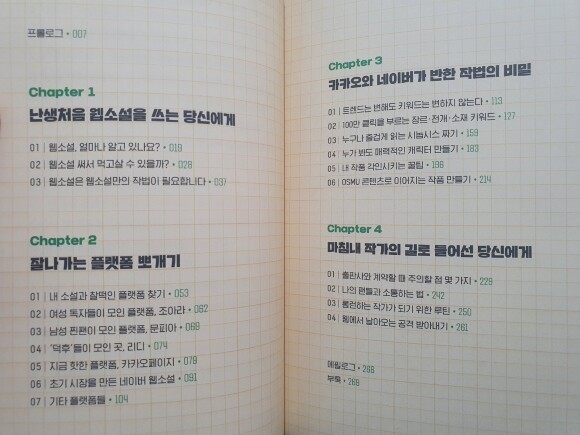 프롤로그 • 007
Chapter 1
난생처음 웹소설을 쓰는 당신에게
01 | 웹소설, 얼마나 알고 있나요? • 019
02 | 웹소설 써서 먹고살 수 있을까? • 028
03 | 웹소설은 웹소설만의 작법이 필요합니다 • 037
Chapter 2
잘나가는 플랫폼 뽀개기
01 | 내 소설과 찰떡인 플랫폼 찾기 • 053
02 | 여성 독자들이 모인 플랫폼, 조아라 • 062
03 | 남성 찐팬이 모인 플랫폼, 문피아 • 069
04 | '덕후'들이 모인 곳, 리디 • 074
05 | 지금 핫한 플랫폼, 카카오페이지 • 079
06 | 초기 시장을 만든 네이버 웹소설 • 091
07 | 기타 플랫폼들 • 104
Chapter 3
카카오와 네이버가 반한 작법의 비밀
01 | 트렌드는 변해도 키워드는 변하지 않는다 • 113
02 | 100만 클릭을 부르는 장르·전개·소재 키워드 • 127
03 | 누구나 즐겁게 읽는 시놉시스 짜기 • 159
04 | 누가 봐도 매력적인 캐릭터 만들기 • 183
05 | 내 작품 각인시키는 꿀팁 • 198
06 | OSMU 콘텐츠로 이어지는 작품 만들기 • 214
Chapter 4
마침내 작가의 길로 들어선 당신에게
01 | 출판사와 계약할 때 주의할 점 몇 가지 • 229
02 | 나의 팬들과 소통하는 법 • 242
03 | 롱런하는 작가가 되기 위한 루틴 • 250
04 | 웹에서 날아오는 공격 받아내기 • 261
에필로그 • 266
부록 • 268